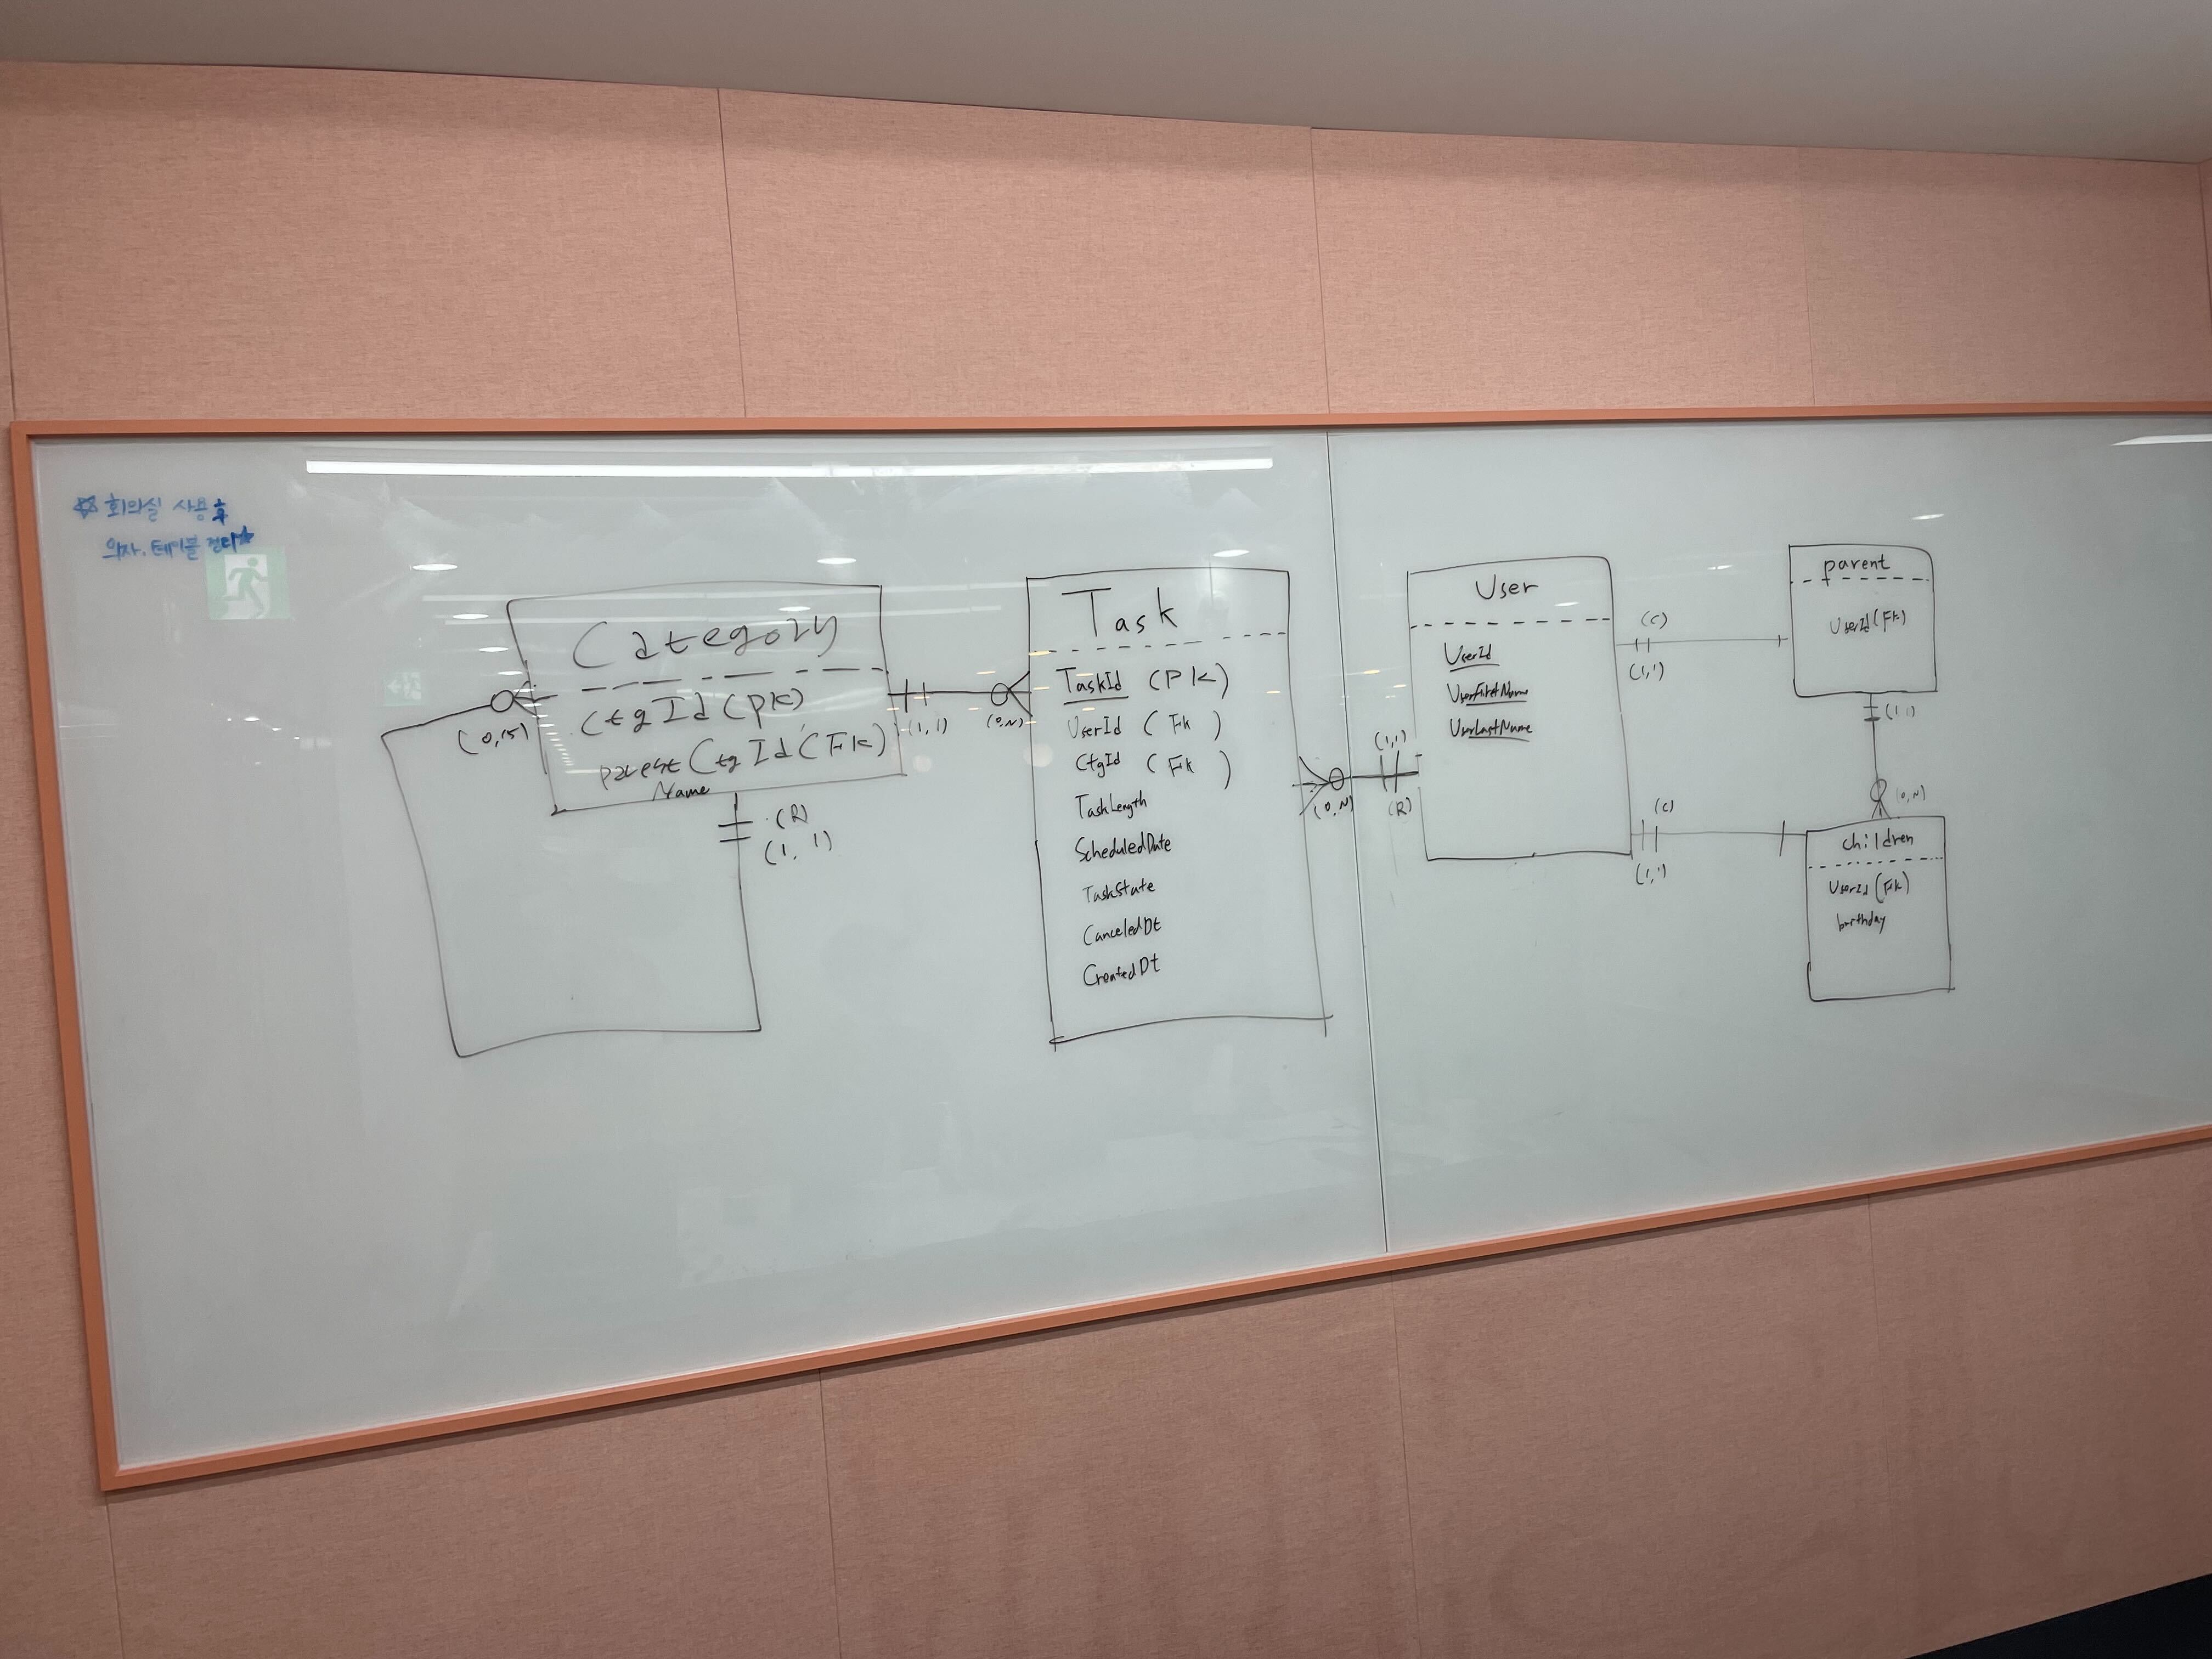 ☆ 회의실 사용 후
의자. 테이블 정리☆
Category
CtgId (PK)
parentCtgId (FK)
Name
(0,15)
(R)
(1, 1)
(1,1)
(0,N)
Task
TaskId (PK)
UserId (FK)
CtgId (FK)
TaskLength
ScheduledDate
TaskState
CanceledDt
CreatedDt
(0,N)
(1,1)
(R)
User
UserId
UserFirstName
UserLastName
(C)
(1,1)
(C)
(1,1)
parent
UserId (FK)
(1,1)
(0,N)
children
UserId (FK)
birthday